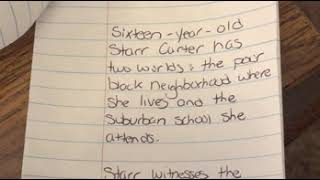 Sixteen-year-old
Starr Carter has
two worlds: the poor
black neighborhood where
she lives and the
Suburban school she
attends.
Starr witnesses the